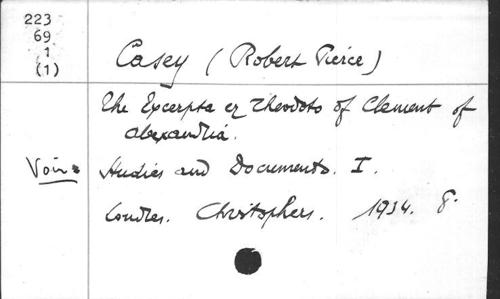 223
69
1
(1)
Casey (Robert Pierce)
The Excerpta ex Theodoto of Clement of
Alexandria.
Voir: Studies and Documents. I.
Londres. Christophers. 1934. 8°